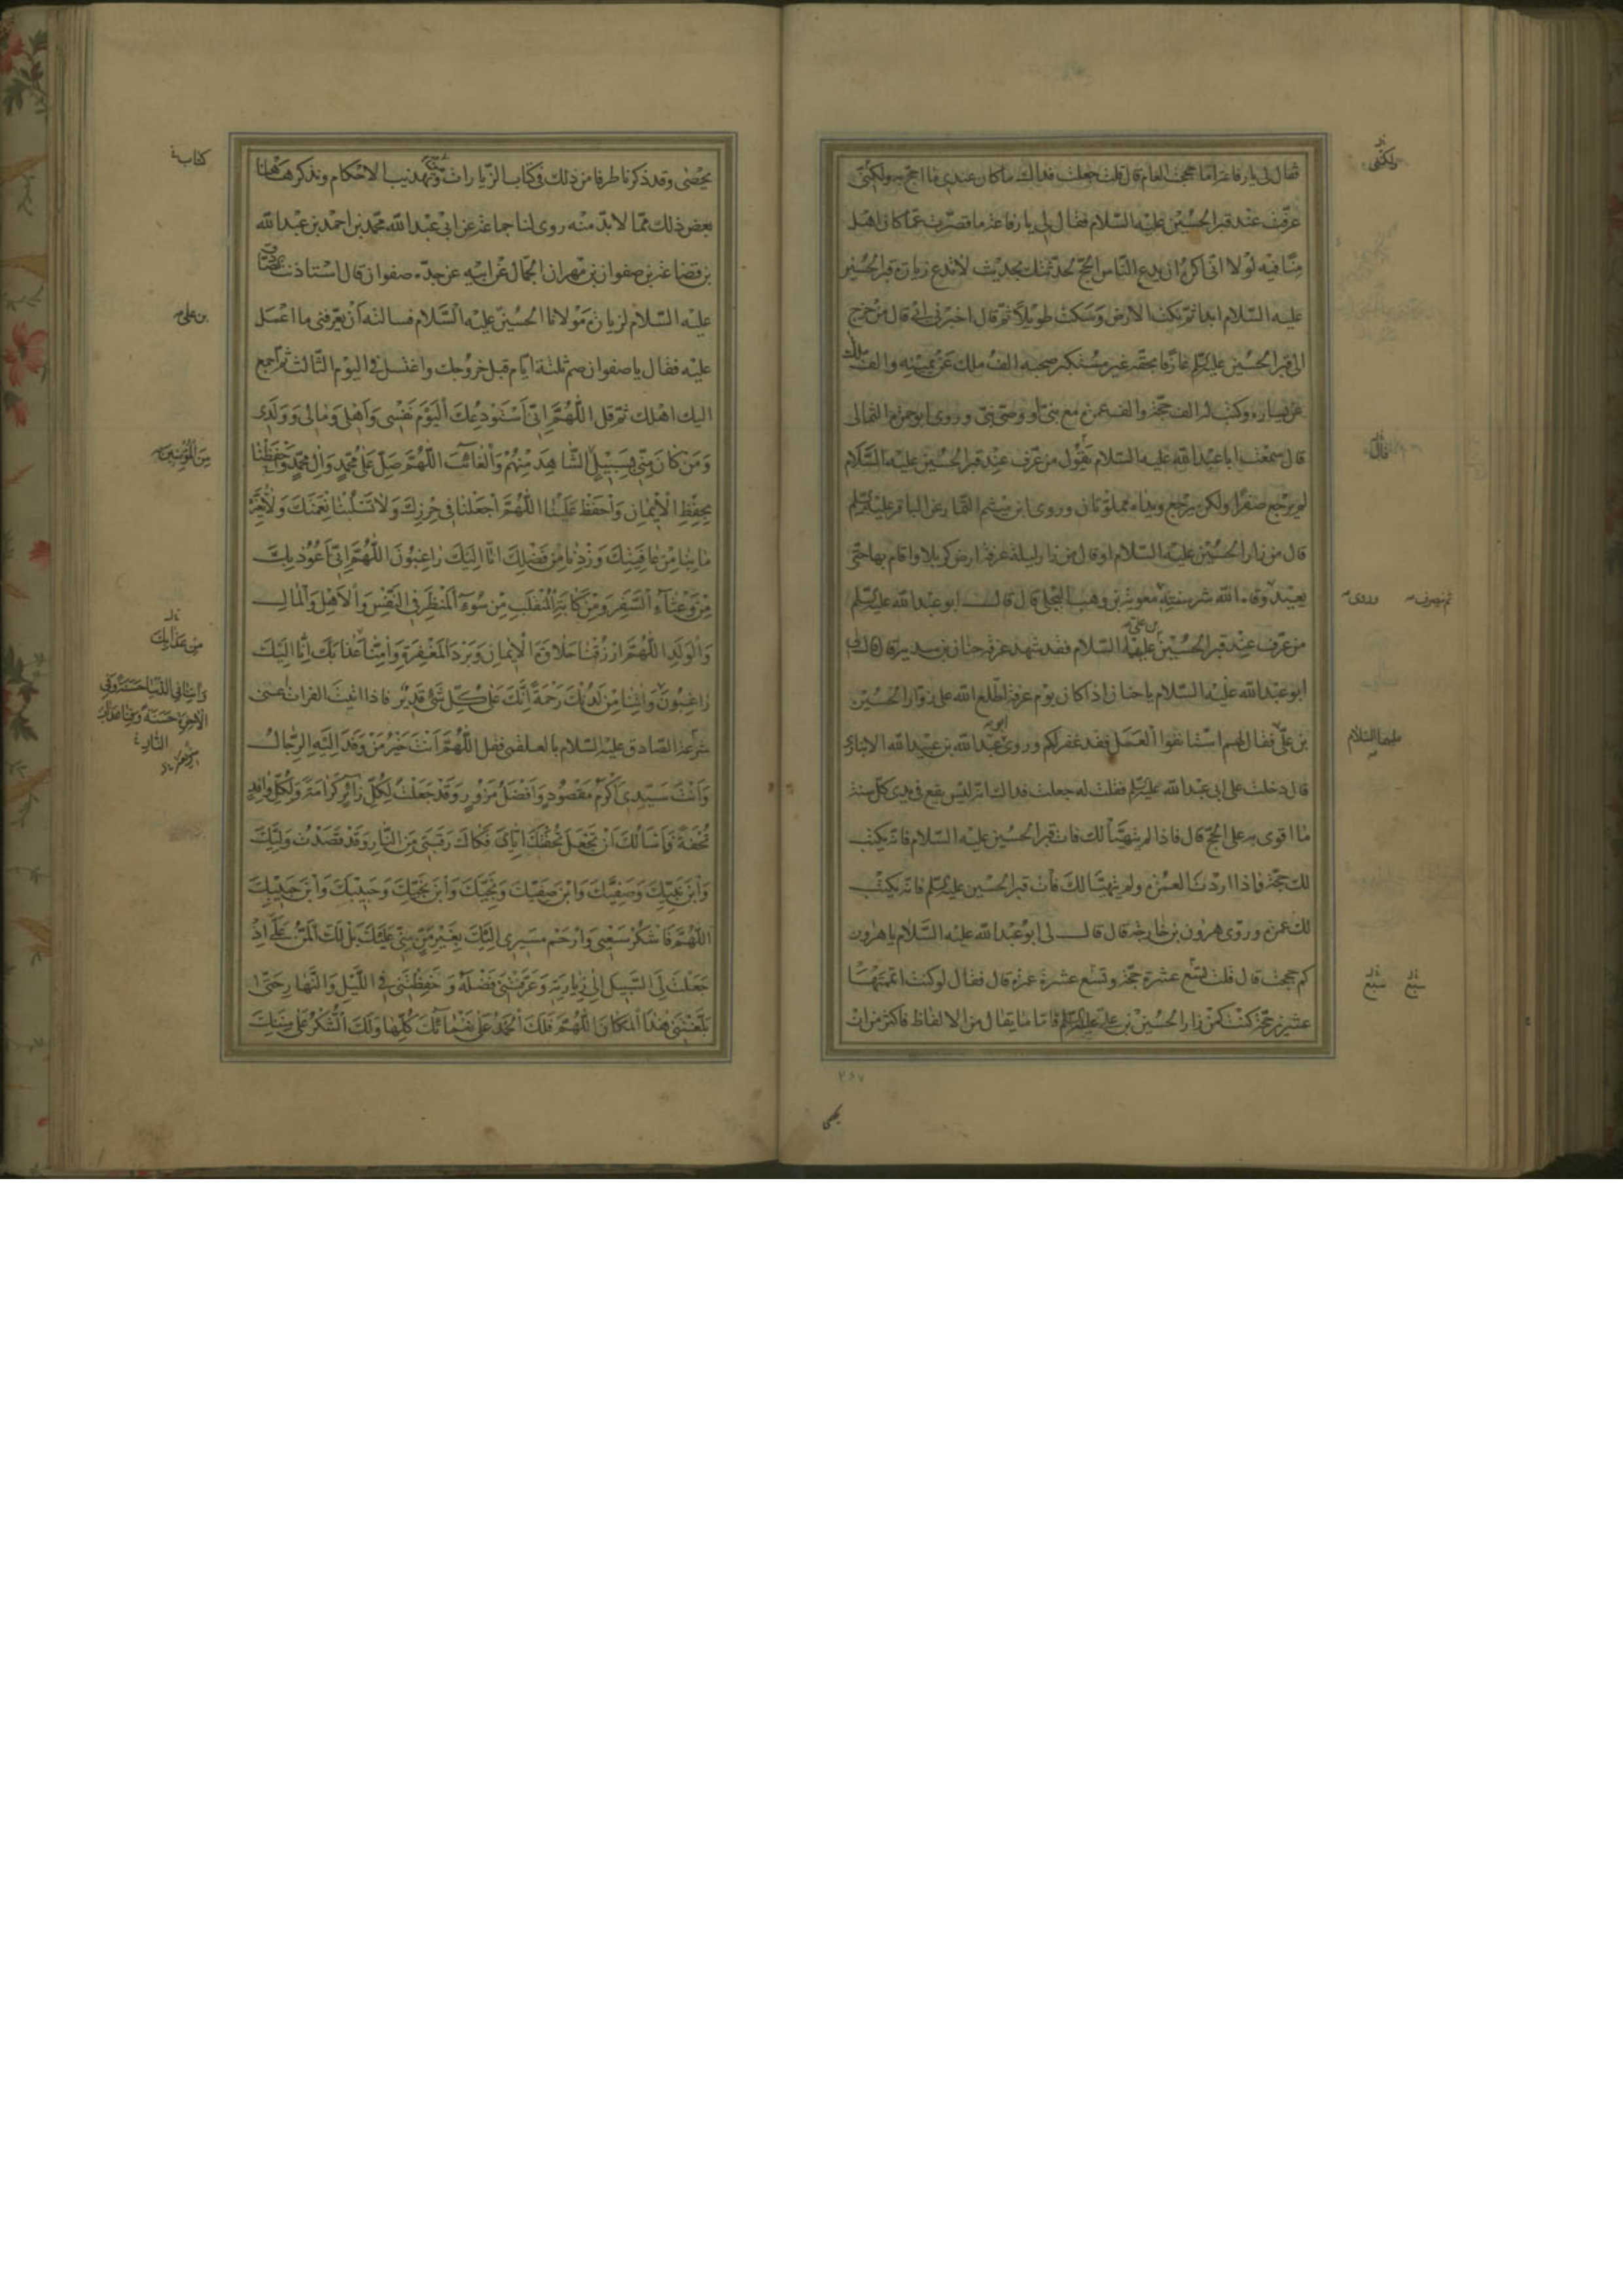 فقال لي يا رفاعة اما حججت العام قال قلت جعلت فداك ما كان عندي ما احج به ولكنّي
عرّفت عند قبر الحسين عليه السلام فقال لي يا رفاعة ما قصرت عما كان اهل
منا فيه لولا اني اكره ان يدع الناس الحج لحدثتك بحديث لا تدع زيارة قبر الحسين
عليه السلام ابدا ثم نكت الارض وسكت طويلا ثم قال اخبرني ابي قال من خرج
الى قبر الحسين عليه السلم عارفا بحقه غير مستكبر صحبه الف ملك عن يمينه والف ملك
عن يساره وكتب له الف حجة والف عمرة مع نبي او وصي نبي وروى ابو حمزة الثمالي
قال سمعت ابا عبد الله عليه السلام يقول من عرف عند قبر الحسين عليه السلام
لم يرجع صفرا ولكن يرجع ويداه مملوتان وروى ابن ميثم التمار عن الباقر عليه السلم
قال من زار الحسين عليه السلام او قال من زار ليلة عرفة ارض كربلا واقام بها حتى
يعيد وقاه الله شر سنته معوية بن وهب البجلي قال قال ابو عبد الله عليه السلم
من عرف عند قبر الحسين بن علي عليهما السلام فقد شهد عرفة حنان بن سدير قال قال لي
ابو عبد الله عليه السلام يا حنان اذا كان يوم عرفة اطلع الله على زوار الحسين
بن علي فقال لهم استانفوا العمل فقد غفر لكم وروى ابو عبد الله بن عبيد الله الانباري
قال دخلت على ابي عبد الله عليه السلم فقلت له جعلت فداك انه ليس يقع في يدي كل سنة
ما اقوى به على الحج قال فاذا لم يتهيأ لك فات قبر الحسين عليه السلام فانه يكتب
لك حجة فاذا اردت العمرة ولم يتهيأ لك فأت قبر الحسين عليه السلم فانه يكتب
لك عمرة وروى هرون بن خارجة قال قال لي ابو عبد الله عليه السلام يا هرون
كم حججت قال قلت تسع عشرة حجة وتسع عشرة عمرة قال فقال لو كنت اتممتها
عشرين حجة كنت كمن زار الحسين بن علي عليه السلم فاما ما يقال من الالفاظ فاكثر من ان
ولكنني
قال
ثم ينصرف
وروى
عليهما السلام
سبع
سبع
٢٤٧
يحصى وقد ذكرنا طرفا من ذلك في كتاب الزيارات وتهذيب الاحكام ونذكر هاهنا
بعض ذلك مما لا بد منه روى لنا جماعة عن ابي عبد الله محمد بن احمد بن عبد الله
بن قضاعة بن صفوان بن مهران الجمال عن ابيه عن جده صفوان قال استاذنت الصادق
عليه السلام لزيارة مولانا الحسين عليه السلام فسالته أن يعرفني ما اعمل
عليه فقال يا صفوان صم ثلثة ايام قبل خروجك واغتسل في اليوم الثالث ثم اجمع
اليك اهلك ثم قل اللهُمَّ اِنّي اَسْتَوْدِعُكَ اَلْيَوْمَ نَفْسي وَاَهْلي وَمالي وَوَلَدي
وَمَنْ كانَ مِنّي بِسَبيلٍ الشّاهِدَ مِنْهُمْ وَالْغائِبَ اَللّهُمَّ صَلِّ عَلى مُحَمَّدٍ وَآلِ مُحَمَّدٍ وَاحْفَظْنا
بِحِفْظِ الْاِيمانِ وَاحْفَظْ عَلَيْنا اللّهُمَّ اجْعَلْنا في حِرْزِكَ وَلا تَسْلُبْنا نِعْمَتَكَ وَلا تُغَيِّرْ
ما بِنا مِنْ عافِيَتِكَ وَزِدْنا مِنْ فَضْلِكَ اِنّا اِلَيْكَ راغِبُونَ اللّهُمَّ اِنّي اَعُوذُ بِكَ
مِنْ وَعْثآءِ السَّفَرِ وَمِنْ كَآبَةِ الْمُنْقَلَبِ مِنْ سُوءِ الْمَنْظَرِ فِي النَّفْسِ وَالْاَهْلِ وَالْمالِ
وَالْوَلَدِ اللّهُمَّ ارْزُقْنا حَلاوَةَ الْاِيمانِ وَبَرْدَ الْمَغْفِرَةِ وَآمِنّا عَذابَكَ اِنّا اِلَيْكَ
راغِبُونَ وَآتِنا مِنْ لَدُنْكَ رَحْمَةً اِنَّكَ عَلى كُلِّ شَيْءٍ قَديرٌ فاذا اتيت الفرات اعني
شرعة الصادق عليه السلام بالعلقمي فقل اَللّهُمَّ اَنْتَ خَيْرُ مَنْ وَفَدَ اِلَيْهِ الرِّجالُ
وَاَنْتَ سَيِّدي اَكْرَمُ مَقْصُودٍ وَاَفْضَلُ مَزُورٍ وَقَدْ جَعَلْتَ لِكُلِّ زائِرٍ كَرامَةً وَلِكُلِّ وافِدٍ
تُحْفَةً وَاَسْاَلُكَ اَنْ تَجْعَلَ تُحْفَتَكَ اِيّايَ فَكاكَ رَقَبَتي مِنَ النّارِ وَقَدْ قَصَدْتُ وَلِيَّكَ
وَابْنَ نَبِيِّكَ وَصَفِيَّكَ وَابْنَ صَفِيِّكَ وَنَجِيَّكَ وَابْنَ نَجِيِّكَ وَحَبيبَكَ وَابْنَ حَبيبِكَ
اللّهُمَّ فَاشْكُرْ سَعْيي وَارْحَمْ مَسيري اِلَيْكَ بِغَيْرِ مَنٍّ مِنّي عَلَيْكَ بَلْ لَكَ الْمَنُّ عَلَيَّ اِذْ
جَعَلْتَ لِيَ السَّبيلَ اِلى زِيارَتِهِ وَعَرَّفْتَني فَضْلَهُ وَحَفِظْتَني فِي اللَّيْلِ وَالنَّهارِ حَتّى
بَلَّغْتَني هذَا الْمَكانَ اللّهُمَّ فَلَكَ الْحَمْدُ عَلى نَعْمائِكَ كُلِّها وَلَكَ الشُّكْرُ عَلى مِنَنِكَ
كتاب
بن علي
مِنَ الْمُؤْمِنينَ
مِنْ عَذابِكَ
وَآتِنا فِي الدُّنْيا حَسَنَةً وَفِي
الْآخِرَةِ حَسَنَةً وَقِنا عَذابَ
النّارِ